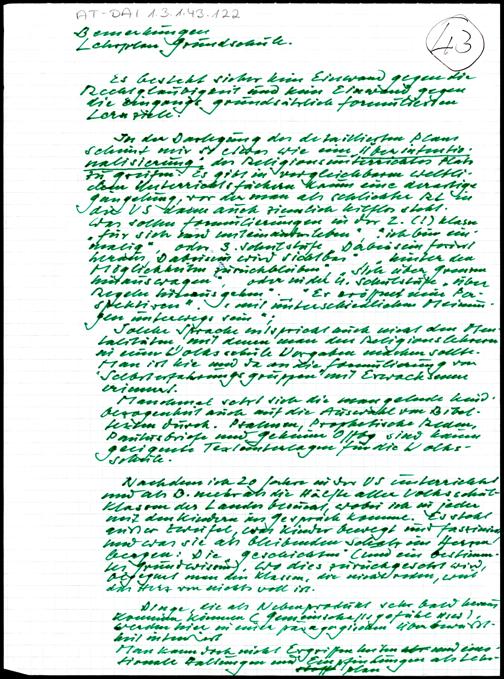 AT-DAI 1.3.1.43.122
43
Bemerkungen
Lehrplan Grundschule.
Es besteht sicher kein Einwand gegen die
Rechtgläubigkeit und kein Einwand gegen
die eingangs grundsätzlich formulierten
Lernziele.
In der Darlegung des detaillierten Plans
scheint mir so etwas wie eine "Überintentio-
nalisierung" des Religionsunterrichtes Platz
zu greifen. Es gibt in vergleichbaren weltli-
chen Unterrichtsfächern kaum eine derartige
die VS kann auch ziemlich hilflos steht.
Was sollen Formulierungen in der 2. (!) Klasse
"für sich und miteinander leben", "ich bin ein-
malig" oder 3. Schulstufe Dabeisein fordert
heraus, Dabeisein wird sichtbar" "hinter den
Möglichkeiten zurückbleiben" "Sich über Grenzen
hinauswagen" oder in der 4. Schulstufe "über
Regeln hinausgehen" "Es eröffnet neue Per-
spektiven" "mit unterschiedlichen Meinun-
gen unterwegs sein";
Solche Sprache entspricht auch nicht den Men-
talitäten, mit denen man den Religionslehrern
in einer Volksschule Vorgaben machen sollte.
Man ist hie und da an die Formulierung von
"Selbsterfahrungsgruppen" mit Erwachsenen
erinnert.
Manchmal setzt sich die mangelnde Kind-
bezogenheit auch auf die Auswahl von Bibel-
texten durch. Psalmen, Prophetische Reden,
Paulusbriefe und geheime Offbg sind kaum
geeignete Textunterlagen für die Volks-
schule.
Nachdem ich 20 Jahre in der VS unterrichtet
und als B. mehr als die Hälfte aller Volksschul-
klassen des Landes besucht, wobei ich in jeder
mit den Kindern ins Gespräch komme. Es steht
außer Zweifel, was Kinder bewegt und fasziniert
und was sie als bleibenden Schatz im Herzen
bergen: Die "Geschichten" (und ein bestimm-
tes Grundwissen). Wo dies zurückgesetzt wird,
begegnet man den Klassen, die nicht reden, weil
das Herz von nichts voll ist.
Dinge, die als Nebenprodukt sehr bald heraus-
kommen können (Gemeinschaftsgefühl usw),
werden hier in einer pädagogischen
Man kann doch nicht Ergriffensein und emo-
tionale Ballungen und Empfindungen als Lehr-
plan